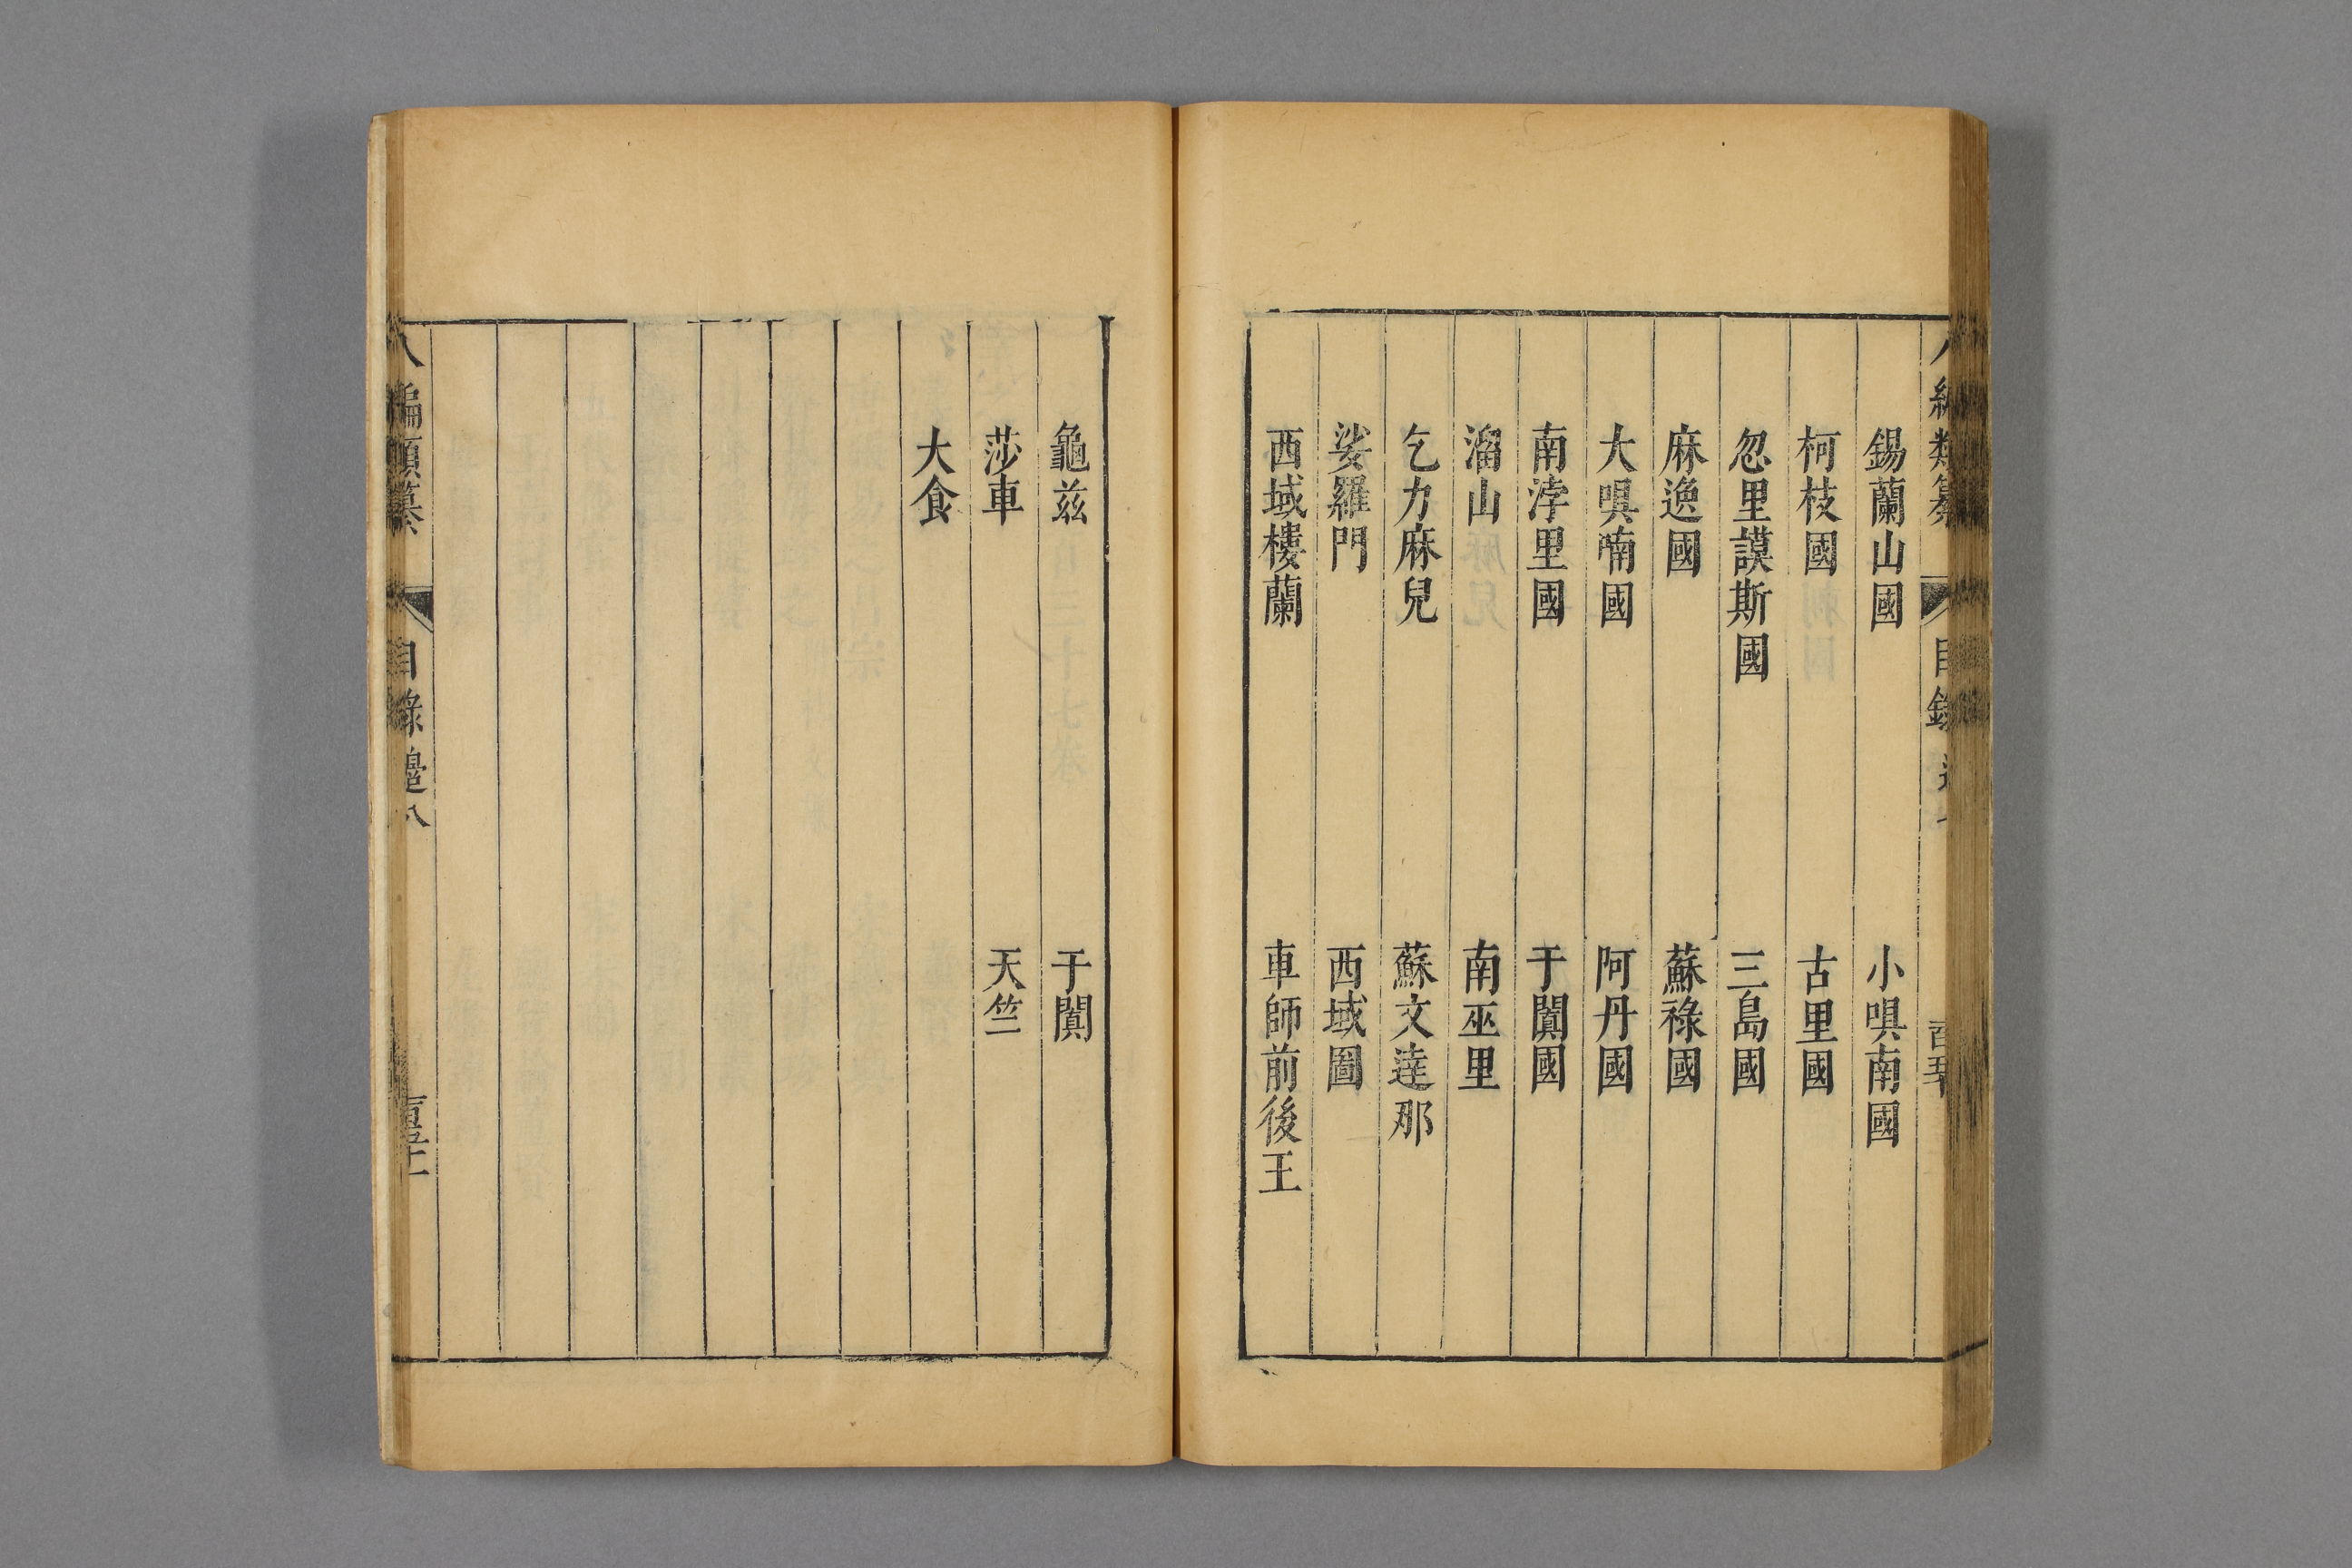 錫蘭山國　小嗅南國
柯枝國　古里國
忽里謨斯國　三島國
麻逸國　蘇祿國
大嗅喃國　阿丹國
南浡里國　于闐國
溜山　南巫里
乞力麻兒　蘇文達那
娑羅門　西域圖
西域樓蘭　車師前後王
龜玆　于闐
莎車　天竺
大食
八編類纂　目錄邊八